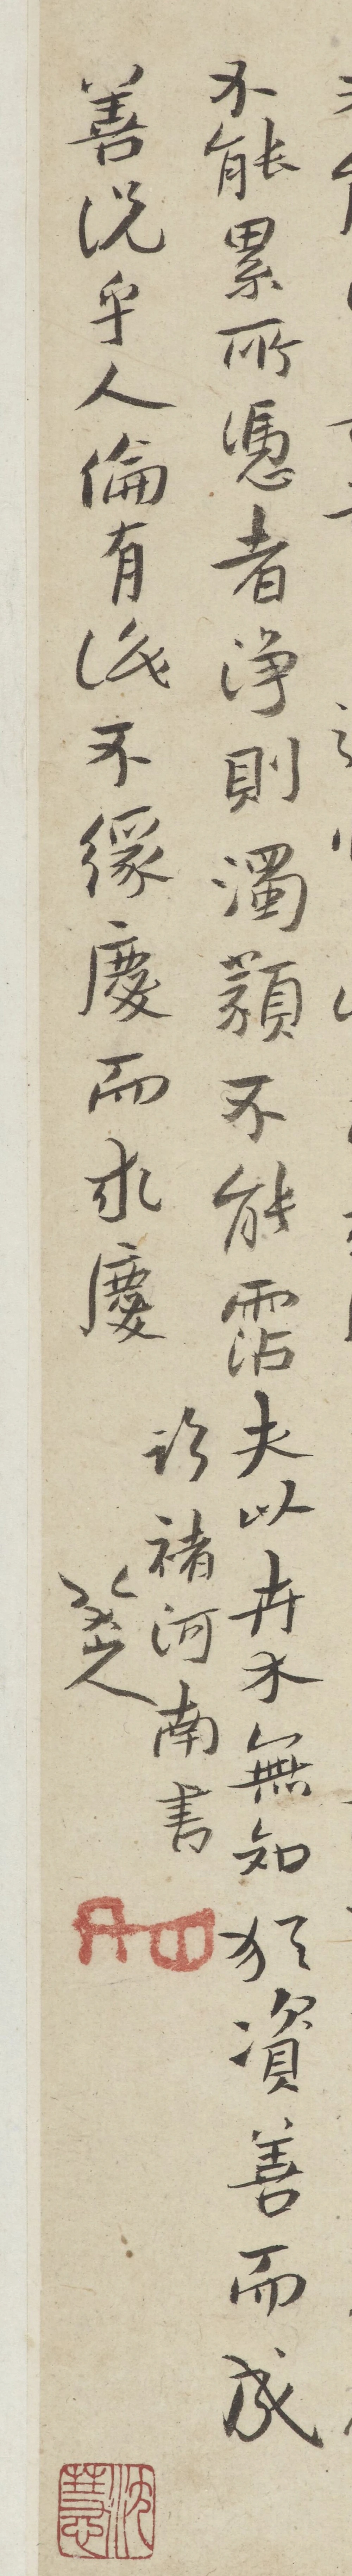 不能累所憑者淨則濁纇不能霑夫以卉木無知猶資善而成
善況乎人倫有識不緣慶而求慶
臨褚河南書
八大山人